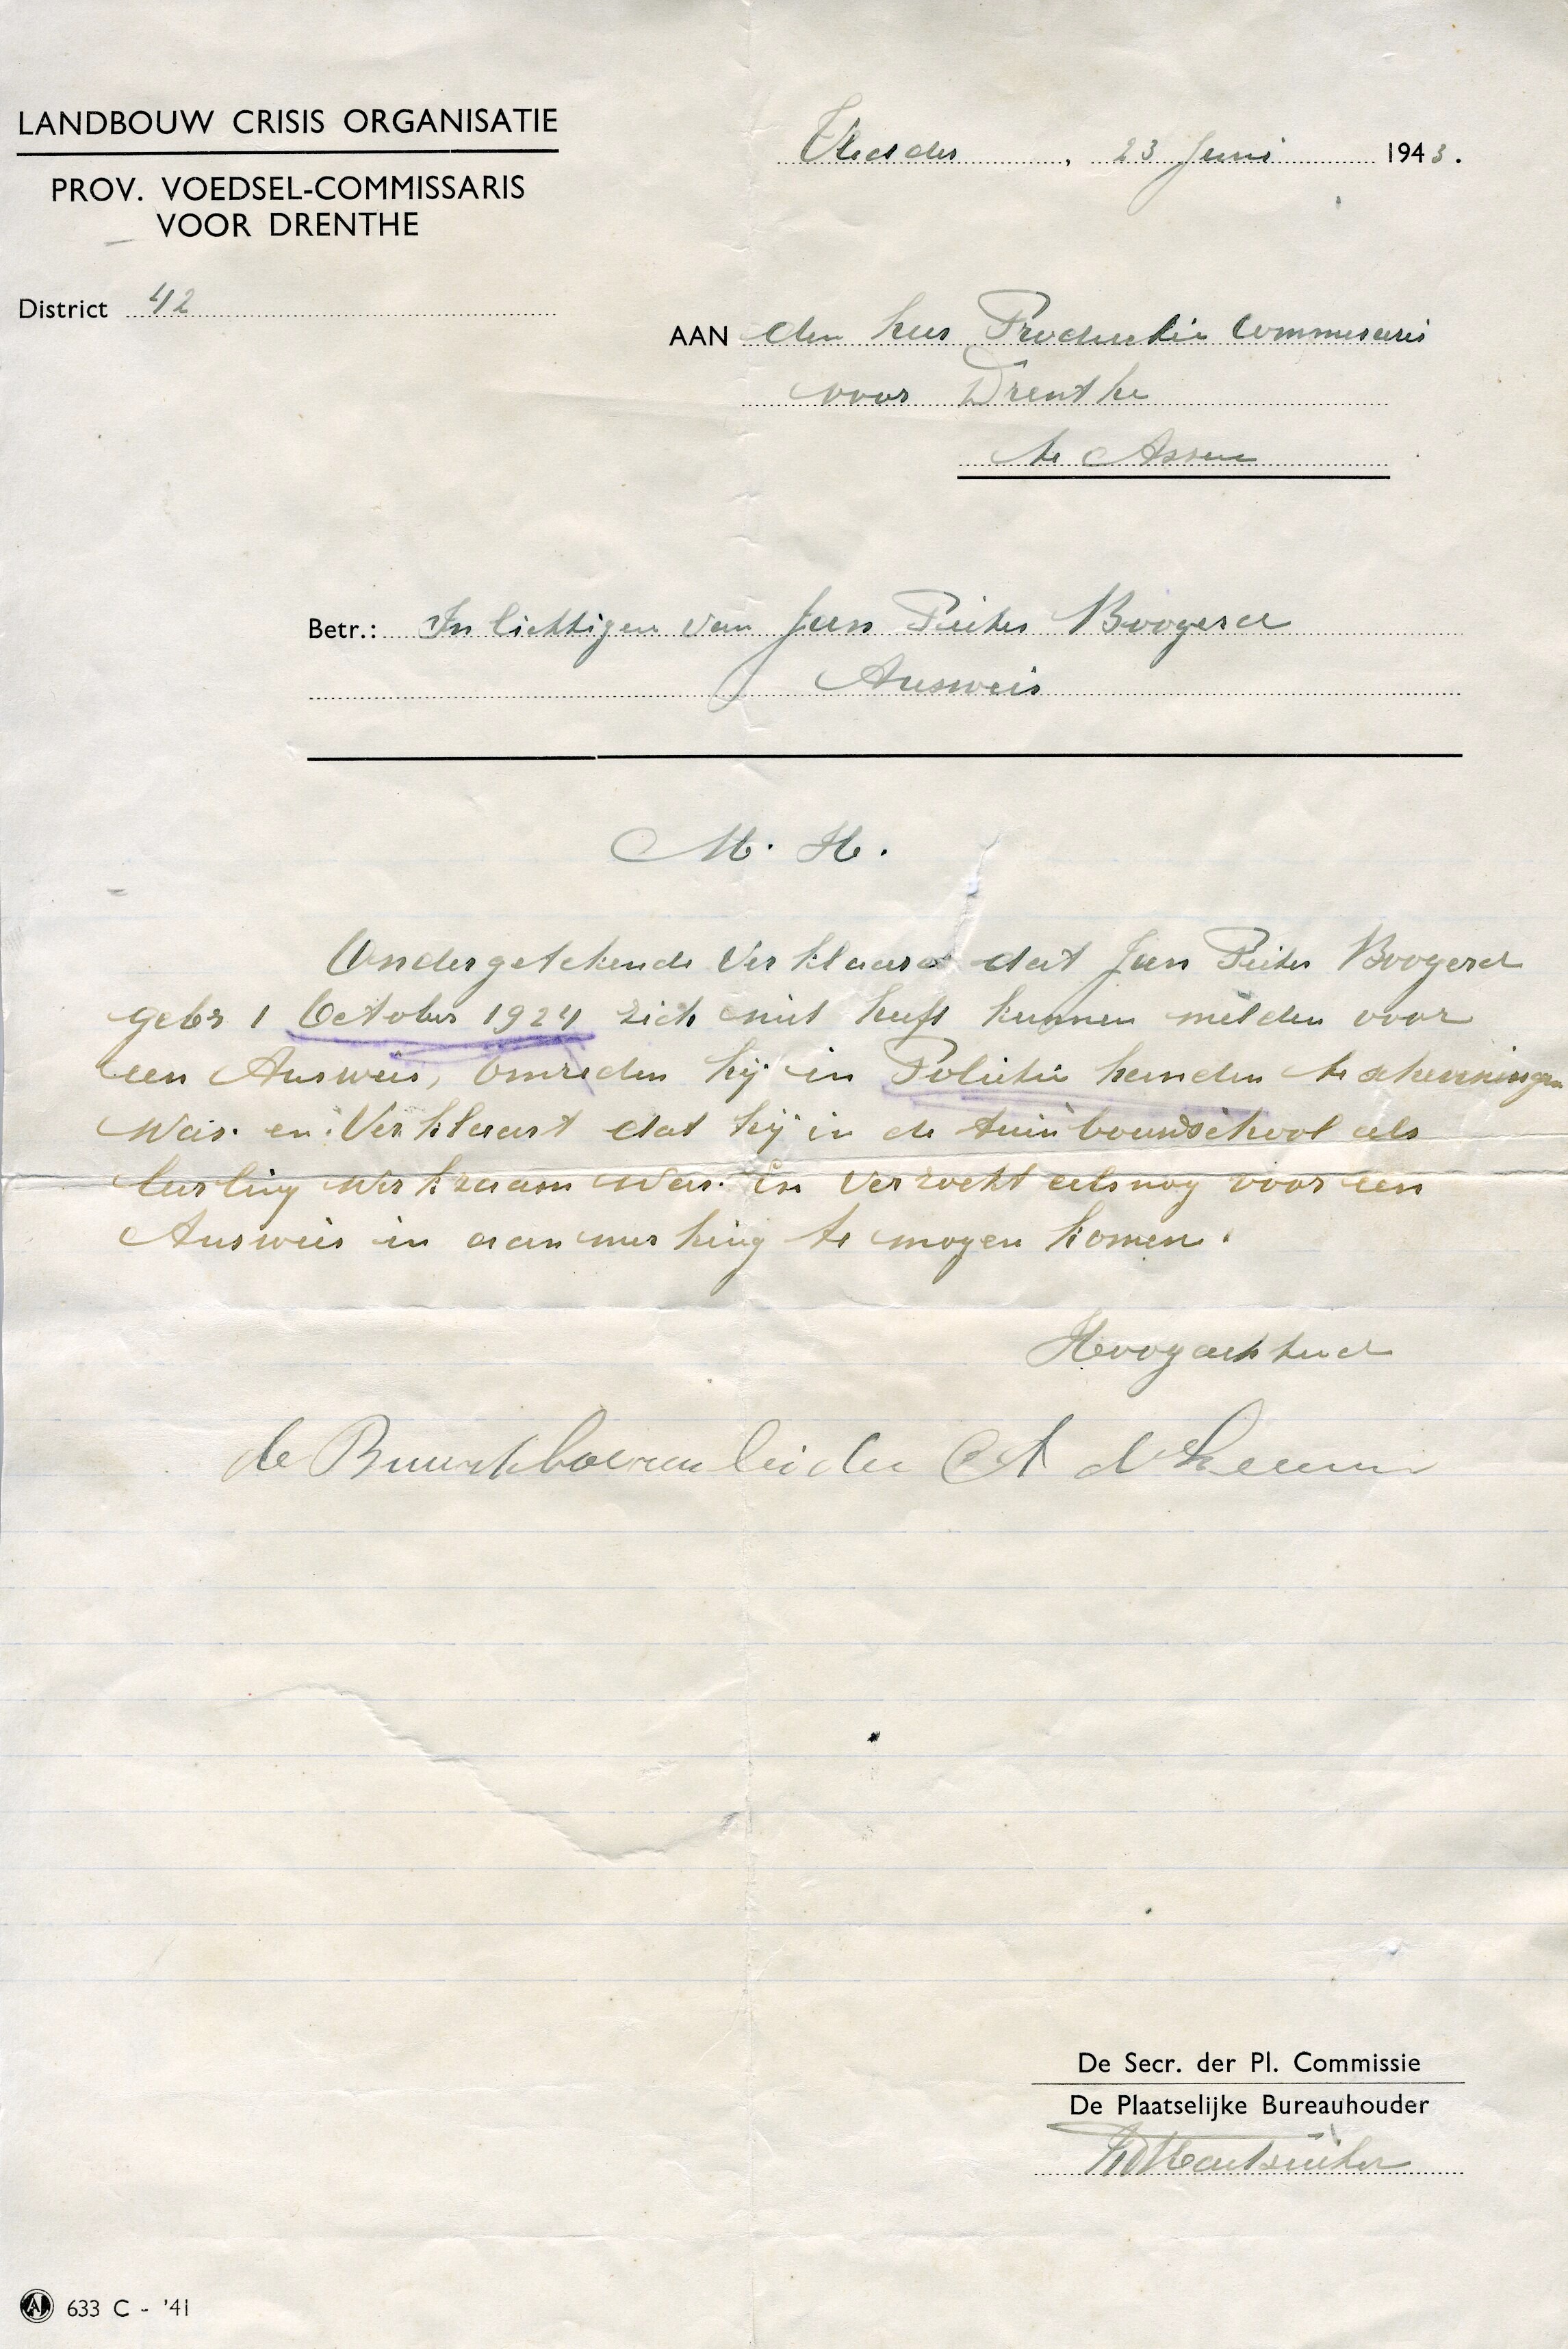 LANDBOUW CRISIS ORGANISATIE
PROV. VOEDSEL-COMMISSARIS
VOOR DRENTHE
District 42
Vledder, 23 Juni 1943.
AAN den heer Productie Commissaris
voor Drenthe
te Assen
Betr.: Inlichtigen van Jan Pieter Boogerd
Ausweis
M. H.
Ondergetekende Verklaard dat Jan Pieter Boogerd
gebr 1 October 1924 zich niet heeft kunnen melden voor
een Ausweis, omreden hij in Politie handen te scheveningen
Was. en Verklaart dat hij in de tuinbouwschool als
leerling werkzaam was. En verzoekt alsnog voor een
Ausweis in aanmerking te mogen komen.
Hoogachtend
de Buurtboerenleider
De Secr. der Pl. Commissie
De Plaatselijke Bureauhouder
633 C - '41